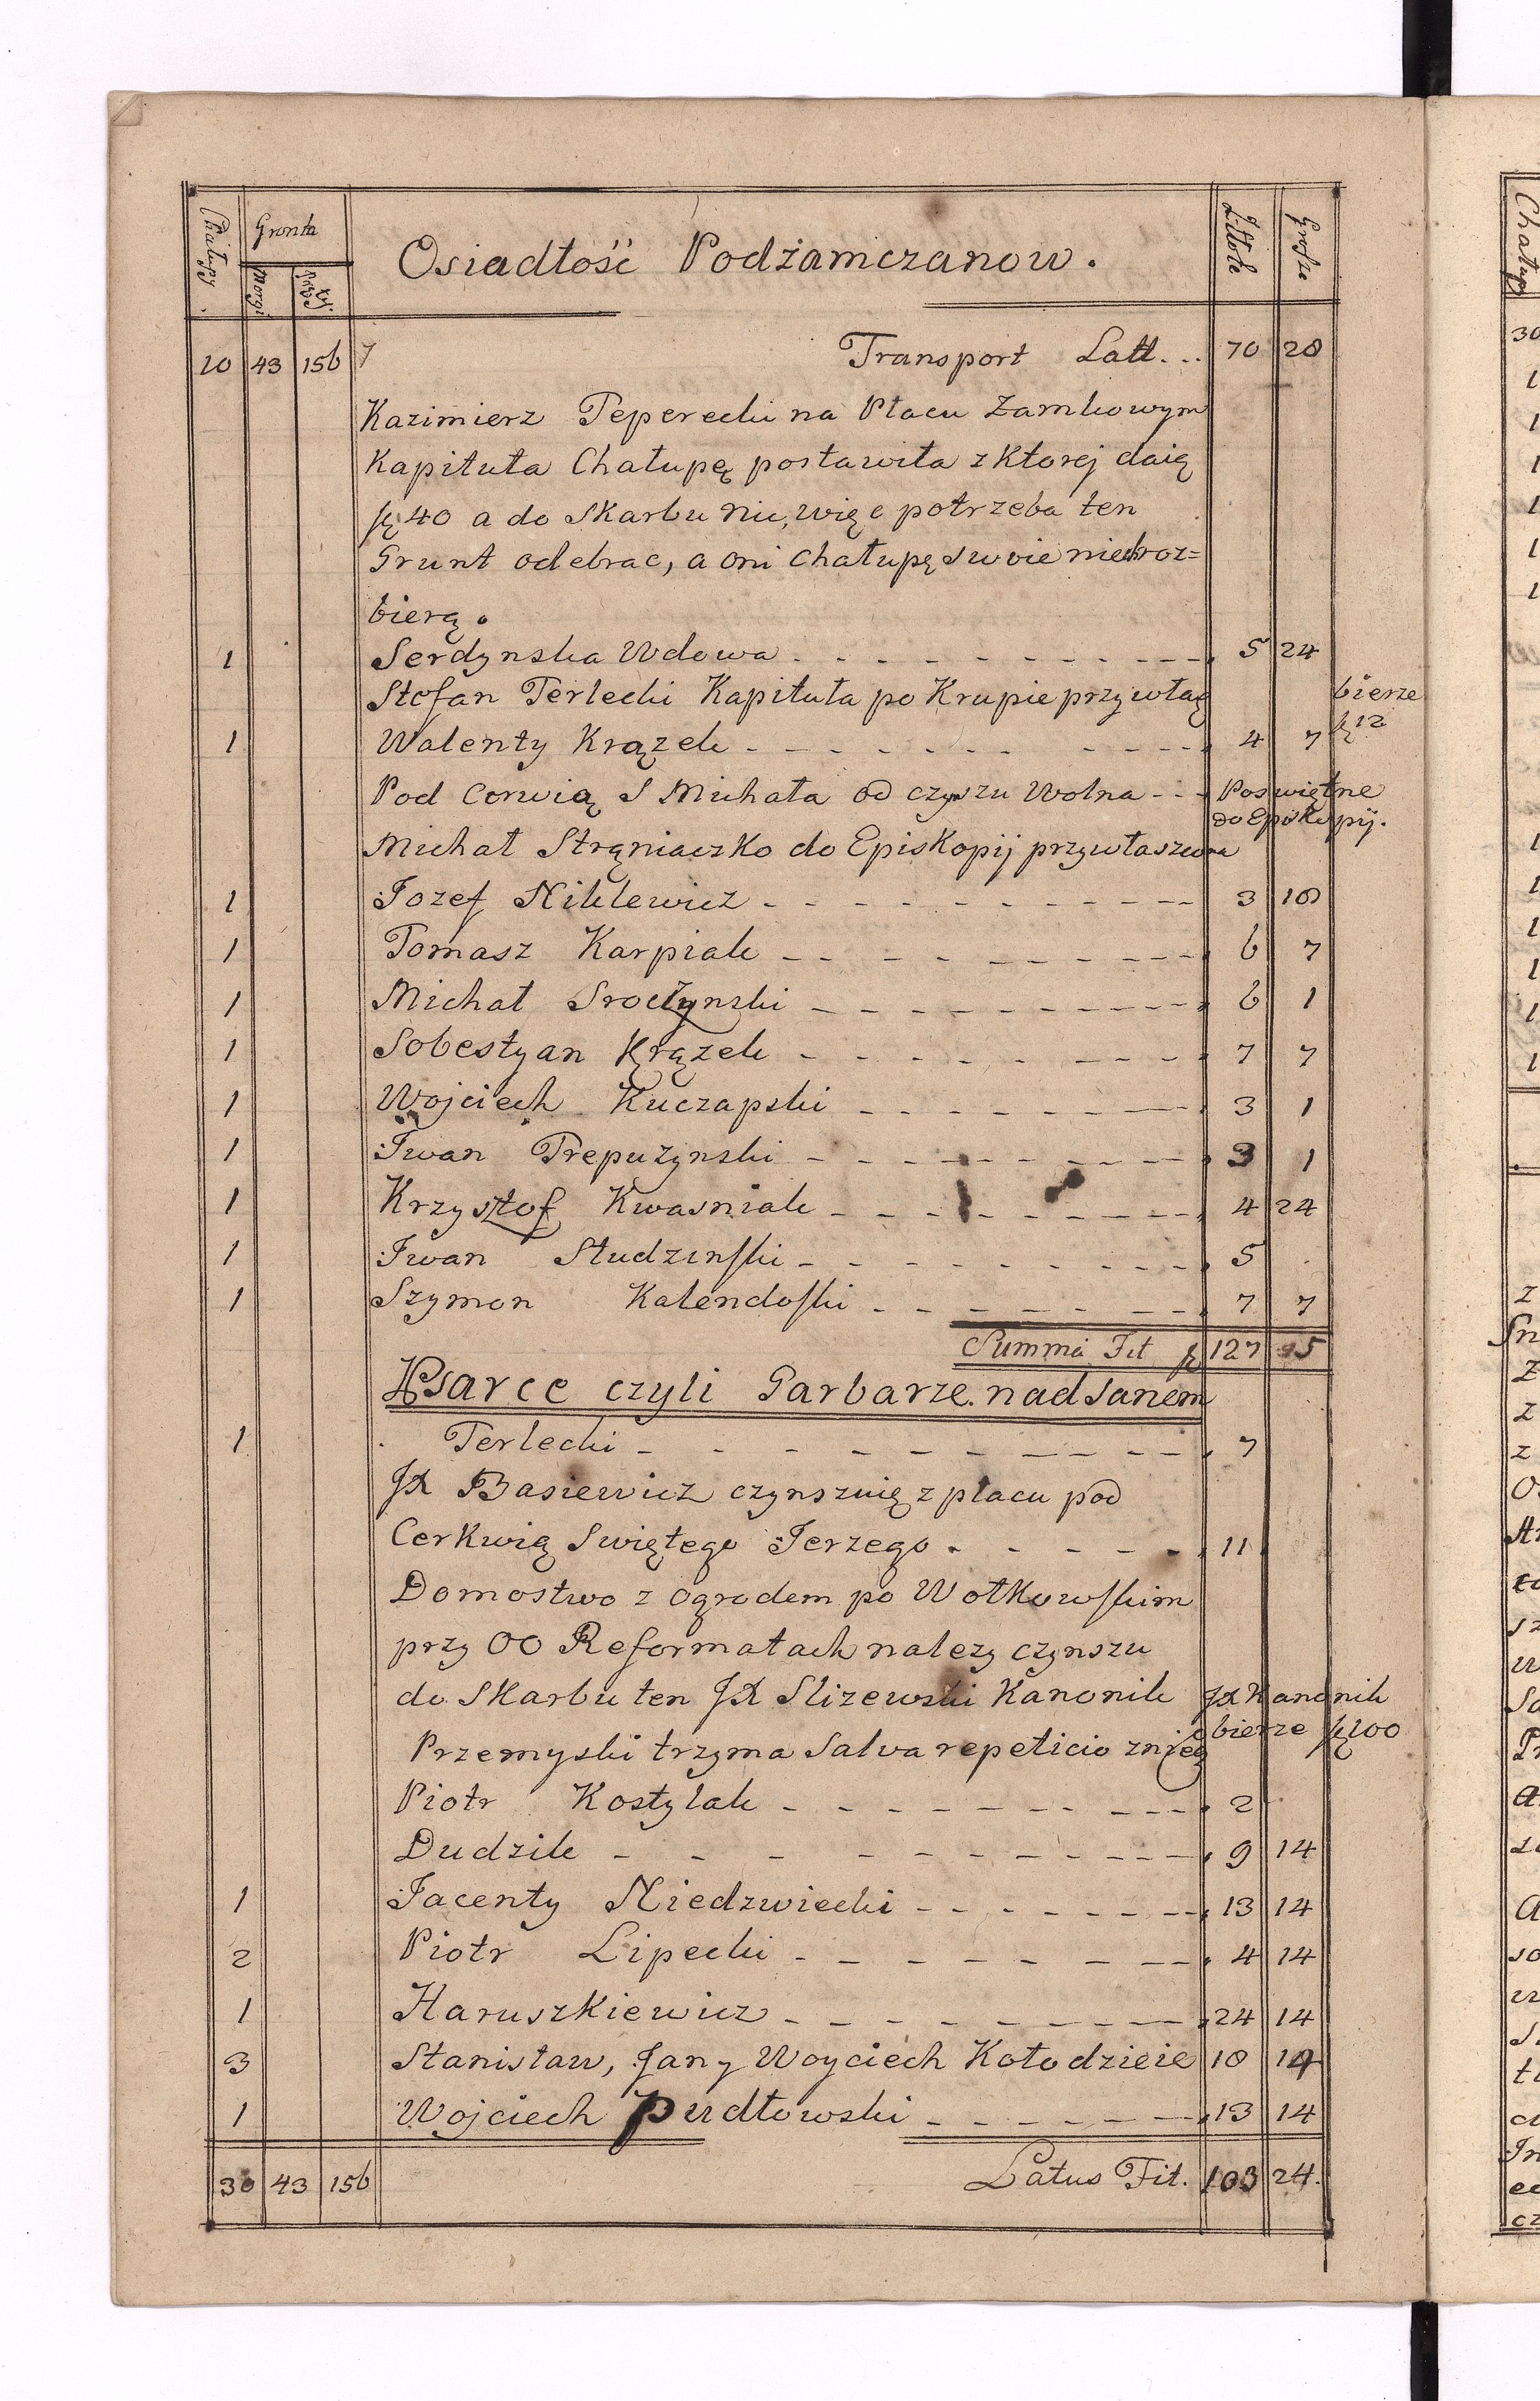 Chałupy Gronta Morgi Osiadłość Podżamczanow. Złłote Grosze
20 43 156 7 Transport Latt... 70 28
Kazimierz Teperecki na Placu Zamkowym
Kapituła Chałupę postawiła z Ktorej daią
fl 40 a do Skarbu nic, więc potrzeba ten
Grunt odebrac, a oni chałupę swoie niech roz=
bierą.
1 Serdynska Wdowa 5 24
Stefan Terlecki Kapituła po Krupie przywłaę bierze
1 Walenty Krązek 4 7 fl 12
Pod Cerwią S Michała od czynszu Wolna Poswiętne
do Episkopij.
Michał Strąniaczko do Episkopij przywłaszcona
1 Jozef Niklewicz 3 18
1 Tomasz Karpiak 6 7
1 Michał Sroczynski 6 1
1 Sobestyan Krązek 7 7
1 Wojciech Kuczapski 3 1
1 Iwan Trepuzynski 3 1
1 Krzysztof Kwasniak 4 24
1 Iwan Studzinski 5
1 Szymon Kalendoski 7 7
Summa Fit fl 127 5
Psarce czyli Garbarze nad Sanem
1 Terlecki 7
JX Basiewicz czynsznię z placu pod
Cerkwią Swiętego Jerzego 11
Domostwo z ogrodem po Wołkowskim
przy OO Reformatach nalezy czynszu
do Skarbu ten JX Slizewski Kanonik JX Kanonik
Przemyski trzyma Salva repeticio znieg bierze fl 200
Piotr Kostylak 2
Dudzik 9 14
1 Jacenty Niedzwiecki 13 14
2 Piotr Lipecki 4 14
1 Haruszkiewicz 24 14
3 Stanisław, Jan y Woyciech Kołodzieie 18 14
1 Wojciech Pudłowski 13 14
30 43 156 Latus Fit. 103 24.